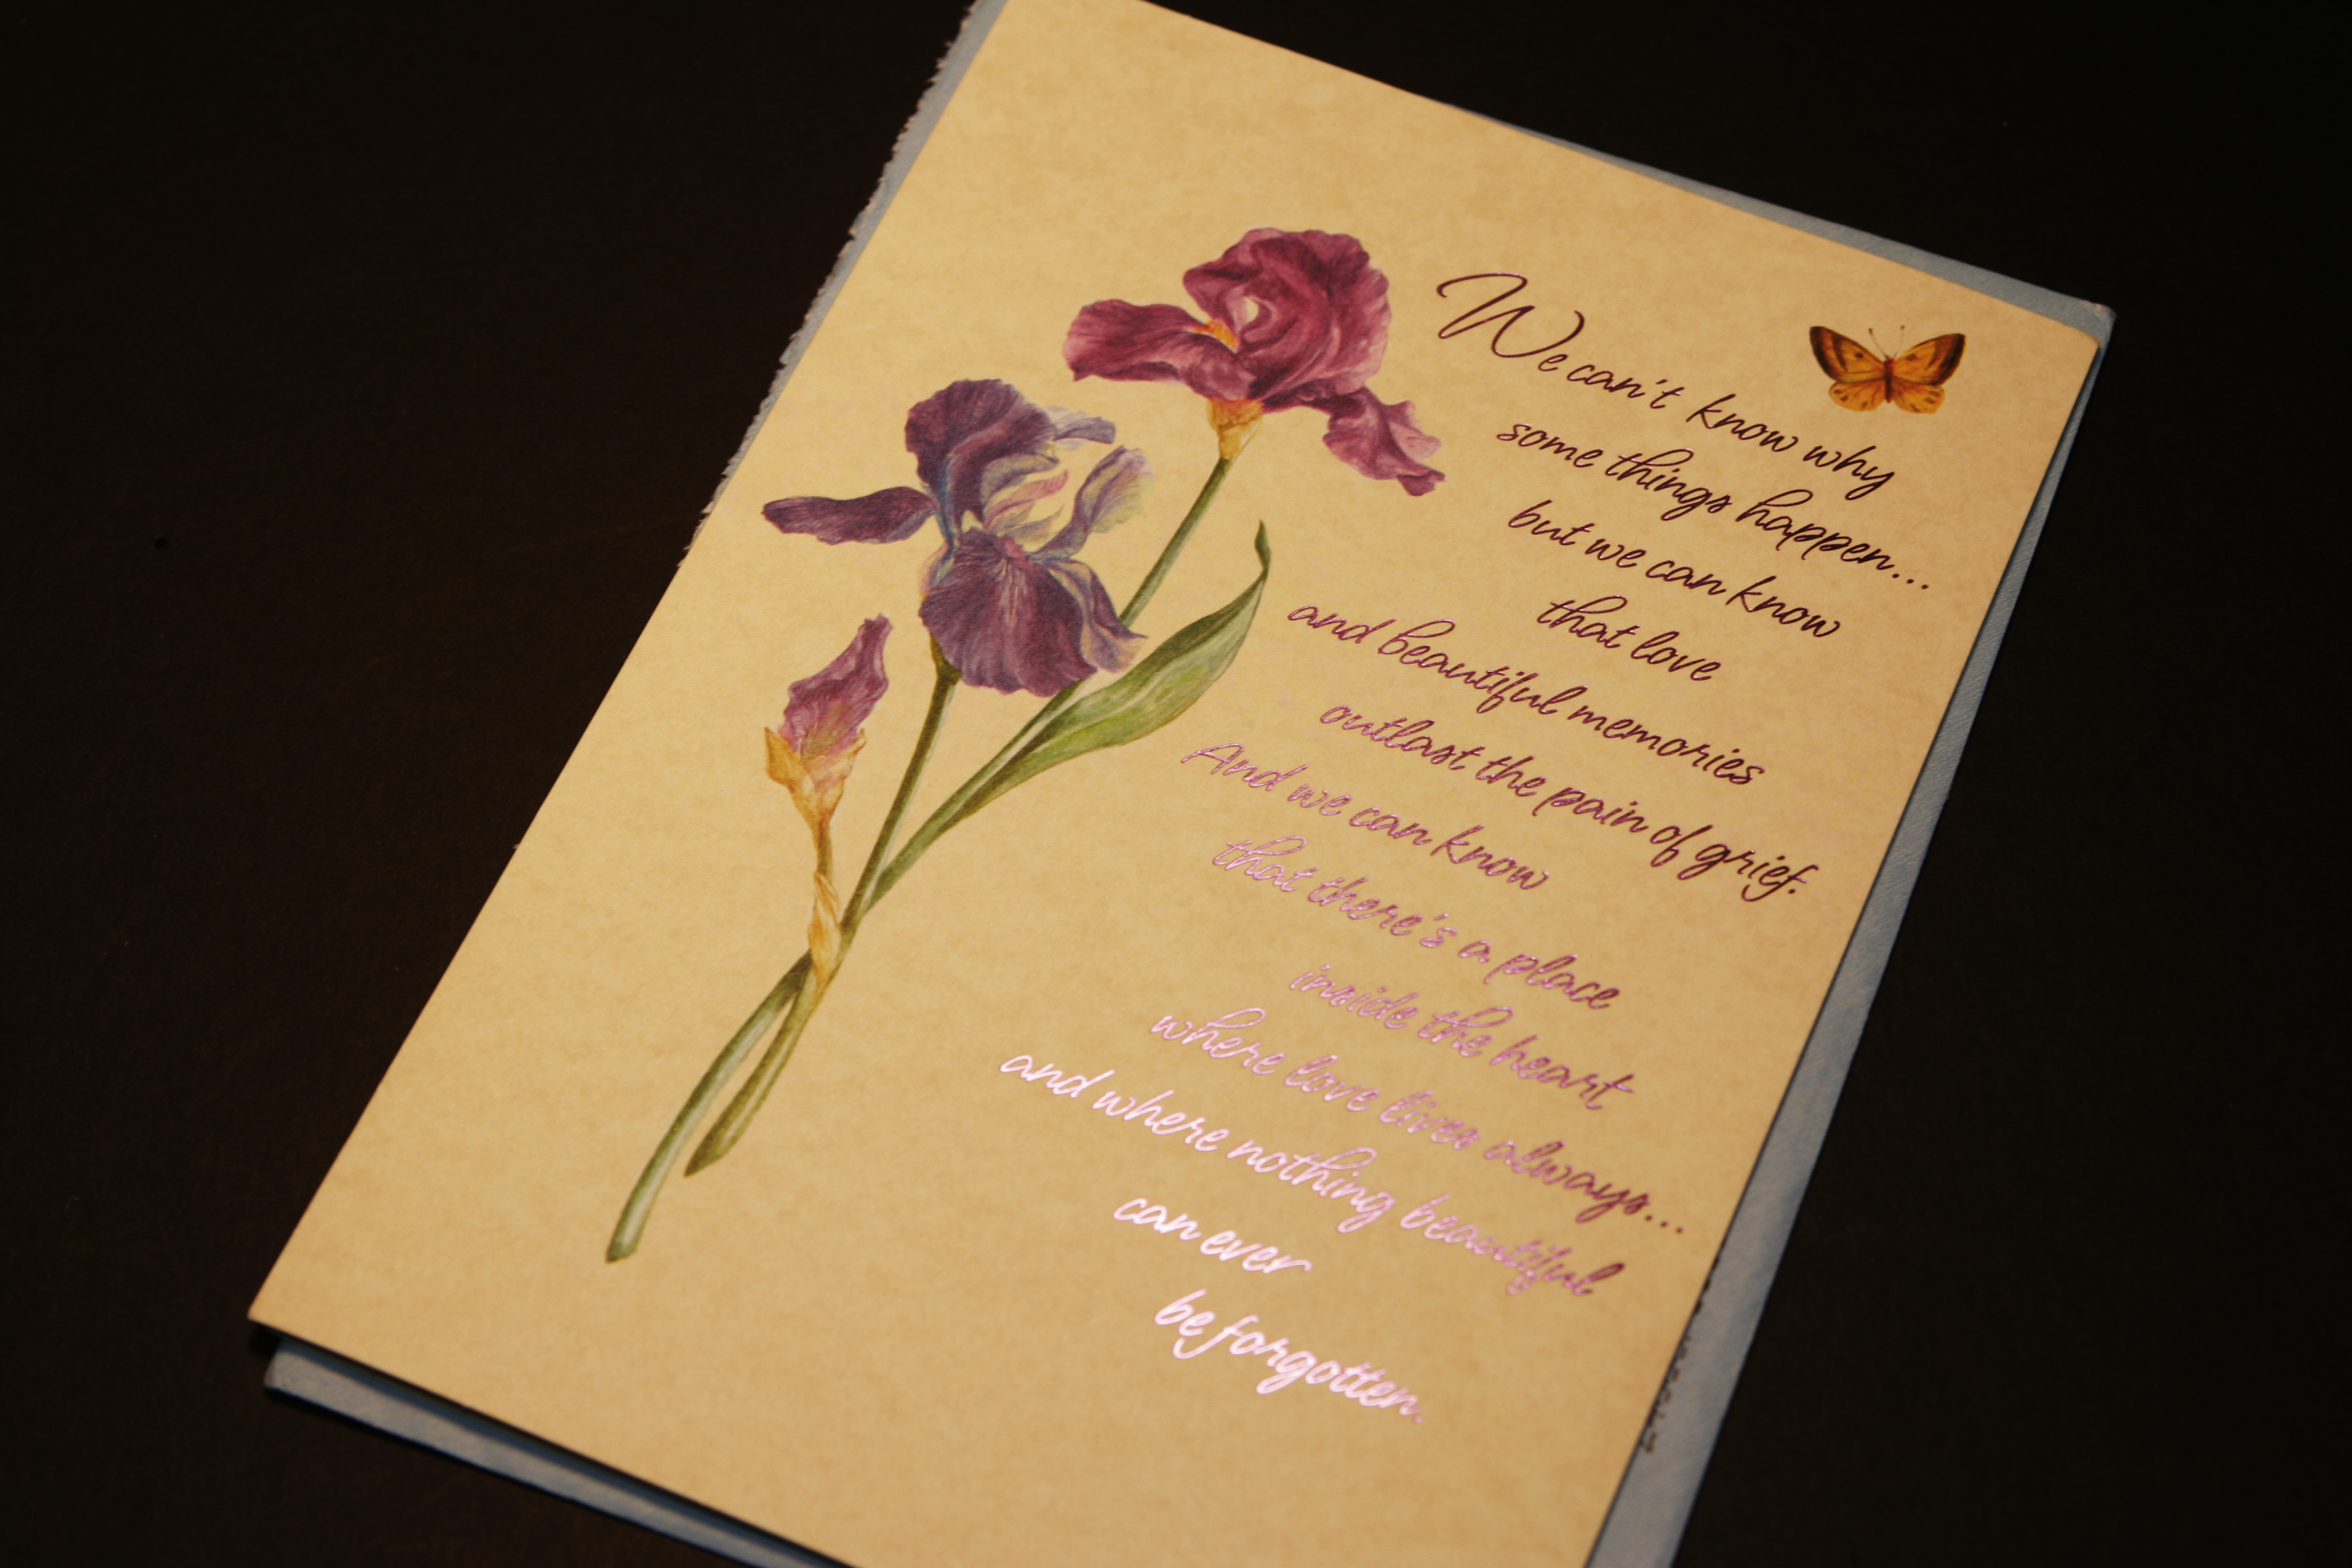 We can't know why
some things happen...
but we can know
that love
and beautiful memories
outlast the pain of grief.
And we can know
that there's a place
inside the heart
where love lives always...
and where nothing beautiful
can ever
be forgotten.